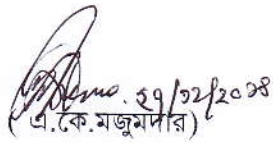 ২৭/১২/২০১৪
(এ.কে.মজুমদার)